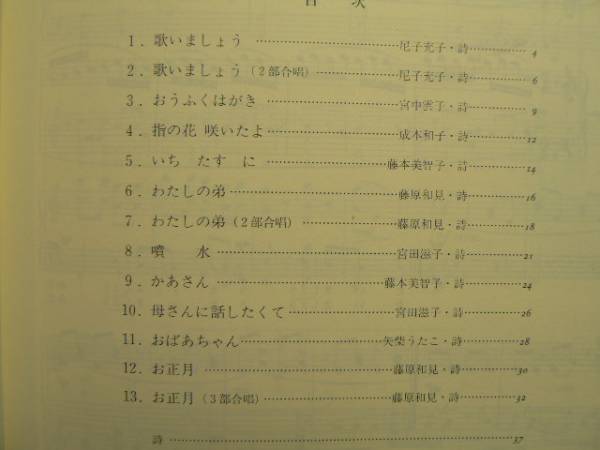 目 次
1．歌いましょう ………… 尼子充子・詩 ………… 4
2．歌いましょう（2部合唱） ………… 尼子充子・詩 ………… 6
3．おうふくはがき ………… 宮中雲子・詩 ………… 9
4．指の花 咲いたよ ………… 成本和子・詩 ………… 12
5．いち たす に ………… 藤本美智子・詩 ………… 14
6．わたしの弟 ………… 藤原和見・詩 ………… 16
7．わたしの弟（2部合唱） ………… 藤原和見・詩 ………… 18
8．噴 水 ………… 宮田滋子・詩 ………… 21
9．かあさん ………… 藤本美智子・詩 ………… 24
10．母さんに話したくて ………… 宮田滋子・詩 ………… 26
11．おばあちゃん ………… 矢柴うたこ・詩 ………… 28
12．お正月 ………… 藤原和見・詩 ………… 30
13．お正月（3部合唱） ………… 藤原和見・詩 ………… 32
詩 ………… 37